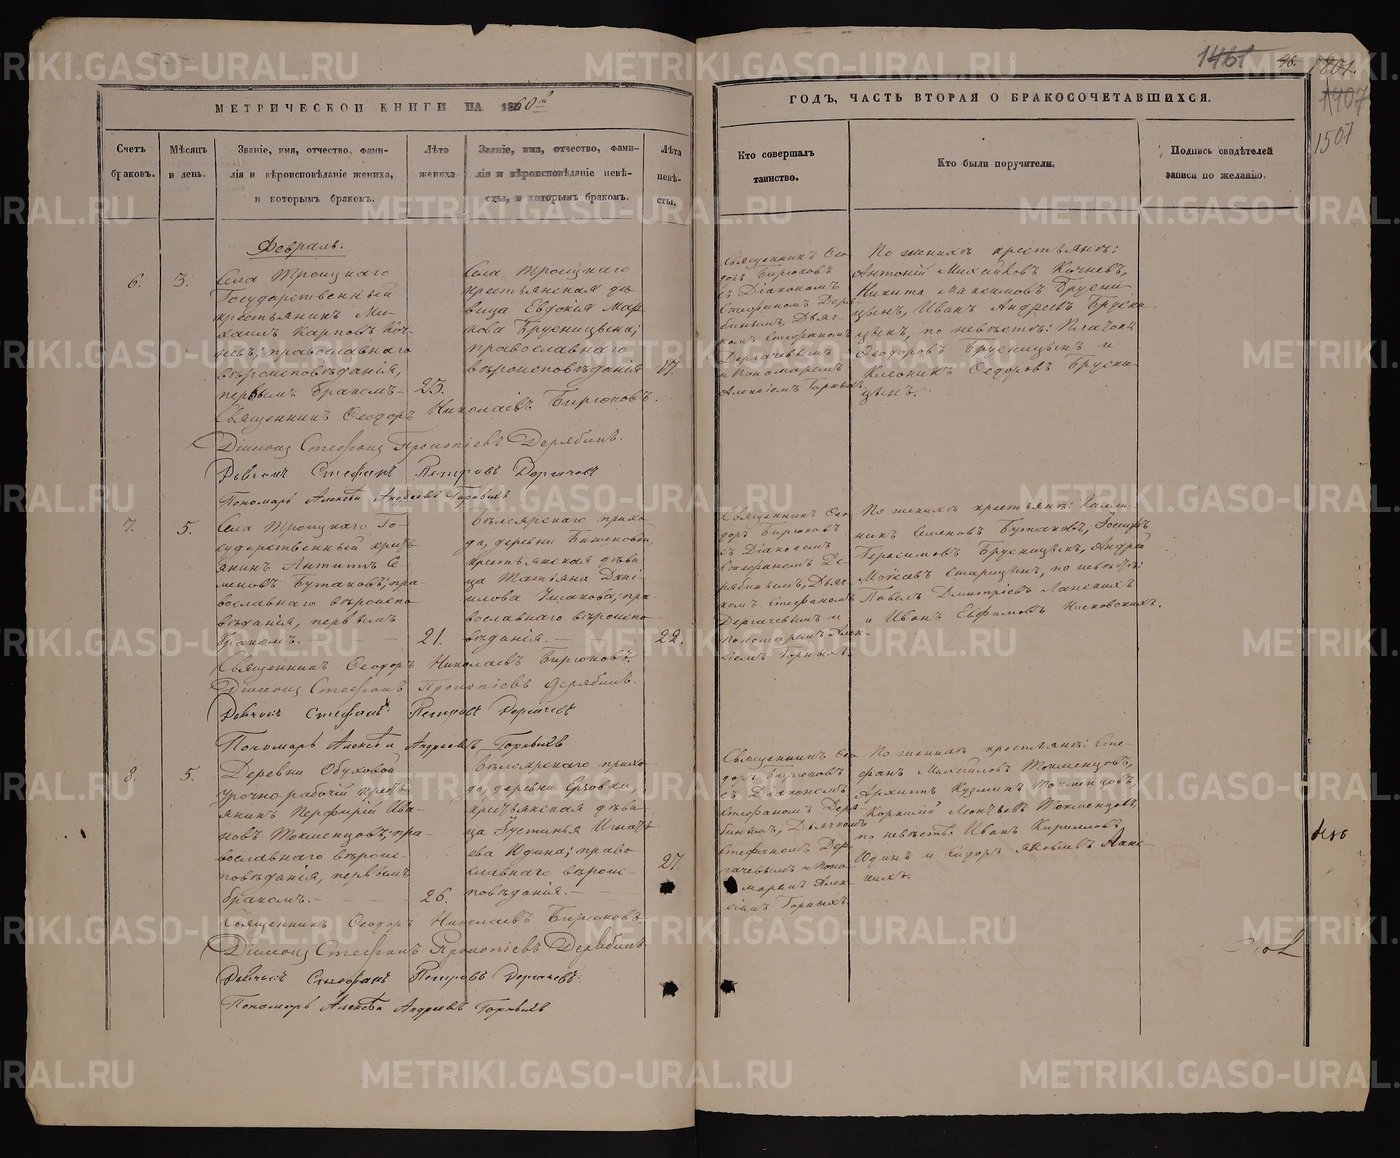 1461 46. 1801.
1407
1507
МЕТРИЧЕСКОЙ КНИГИ НА 1860й
ГОДЪ, ЧАСТЬ ВТОРАЯ О БРАКОСОЧЕТАВШИХСЯ.
Счетъ браковъ.
Мѣсяцъ и день.
Званіе, имя, отчество, фами-
лія и вѣроисповѣданіе жениха,
и которымъ бракомъ.
Лѣта жениха
Званіе, имя, отчество, фами-
лія и вѣроисповѣданіе невѣ-
сты, и которымъ бракомъ.
Лѣта невѣ-
сты.
Кто совершалъ
таинство.
Кто были поручители.
Подпись свидѣтелей
записи по желанію.
Февраль.
6. 3.
Села Троицкаго
Государственный
крестьянинъ Ми-
хаилъ Карповъ Коч-
невъ; православнаго
вѣроисповѣданія,
первымъ бракомъ-
23.
Села Троицкаго
крестьянская дѣ-
вица Евдокія Мар-
кова Брусницына;
православнаго
вѣроисповѣданія
17.
Священникъ Ѳео-
доръ Бирюковъ
съ Діакономъ
Стефаномъ Деря-
бинымъ, Дьяч-
комъ Стефаномъ
Дергачевымъ
и Пономаремъ
Алексіемъ Горныхъ.
По женихѣ крестьянѣ:
Антоній Михайловъ Кочневъ,
Никита Максимовъ Брусни-
цынъ, Иванъ Андреевъ Брусни-
цынъ, по невѣстѣ:
Ѳеодоровъ Брусницынъ и
Ѳедоровъ Брусни-
цынъ.
Священникъ Ѳеодоръ Николаевъ Бирюковъ.
Діаконъ Стефанъ Прокопіевъ Дерябинъ.
Дьячокъ Стефанъ Петровъ Дергачевъ
Пономарь Алексѣй Андреевъ Горныхъ
7. 5.
Села Троицкаго Го-
сударственный кресть-
янинъ Антипъ Се-
меновъ Бутаковъ; пра-
вославнаго вѣроиспо-
вѣданія, первымъ
бракомъ. — —
21.
Бѣлоярскаго прихо-
да, деревни Баженовой,
крестьянская дѣви-
ца Татьяна Дани-
лова Ушакова; пра-
вославнаго вѣроиспо-
вѣданія. —
22.
Священникъ Ѳео-
доръ Бирюковъ
съ Діакономъ
Стефаномъ Де-
рябинымъ, Дьяч-
комъ Стефаномъ
Дергачевымъ и
Пономаремъ Алек-
сіемъ Горныхъ.
По женихѣ крестьянѣ: Калли-
никъ Семеновъ Бутаковъ, Іосифъ
Герасимовъ Брусницынъ, Андрей
Моисеевъ Старицынъ, по невѣстѣ:
Павелъ Дмитріевъ Лапскихъ
и Иванъ Евфимовъ
Священникъ Ѳеодоръ Николаевъ Бирюковъ.
Діаконъ Стефанъ Прокопіевъ Дерябинъ.
Дьячокъ Стефанъ Петровъ Дергачевъ
Пономарь Алексѣй Андреевъ Горныхъ
8. 5.
Деревни Обуховой
урочно-рабочій кресть-
янинъ Перфирій Ива-
новъ Токменцовъ; пра-
вославнаго вѣроис-
повѣданія, первымъ
бракомъ. — — —
26.
Бѣлоярскаго прихо-
да, деревни
крестьянская дѣви-
ца Іустинья Игнать-
ева Юдина; право-
славнаго вѣроис-
повѣданія. — —
27.
Священникъ Ѳео-
доръ Бирюковъ
съ Діакономъ
Стефаномъ Деря-
бинымъ, Дьячкомъ
Стефаномъ Дер-
гачевымъ и Поно-
маремъ Алек-
сіемъ Горныхъ
По женихѣ крестьянѣ: Сте-
фанъ Михайловъ Токменцовъ,
Архипъ Кузминъ Токменцовъ
Корнилій Леонтьевъ Токменцовъ
по невѣстѣ: Иванъ Кирилловъ
Юдинъ и Сидоръ Яковлевъ Лапс-
кихъ.
Священникъ Ѳеодоръ Николаевъ Бирюковъ.
Діаконъ Стефанъ Прокопіевъ Дерябинъ
Дьячокъ Стефанъ Петровъ Дергачевъ.
Пономарь Алексѣй Андреевъ Горныхъ
METRIKI.GASO-URAL.RU